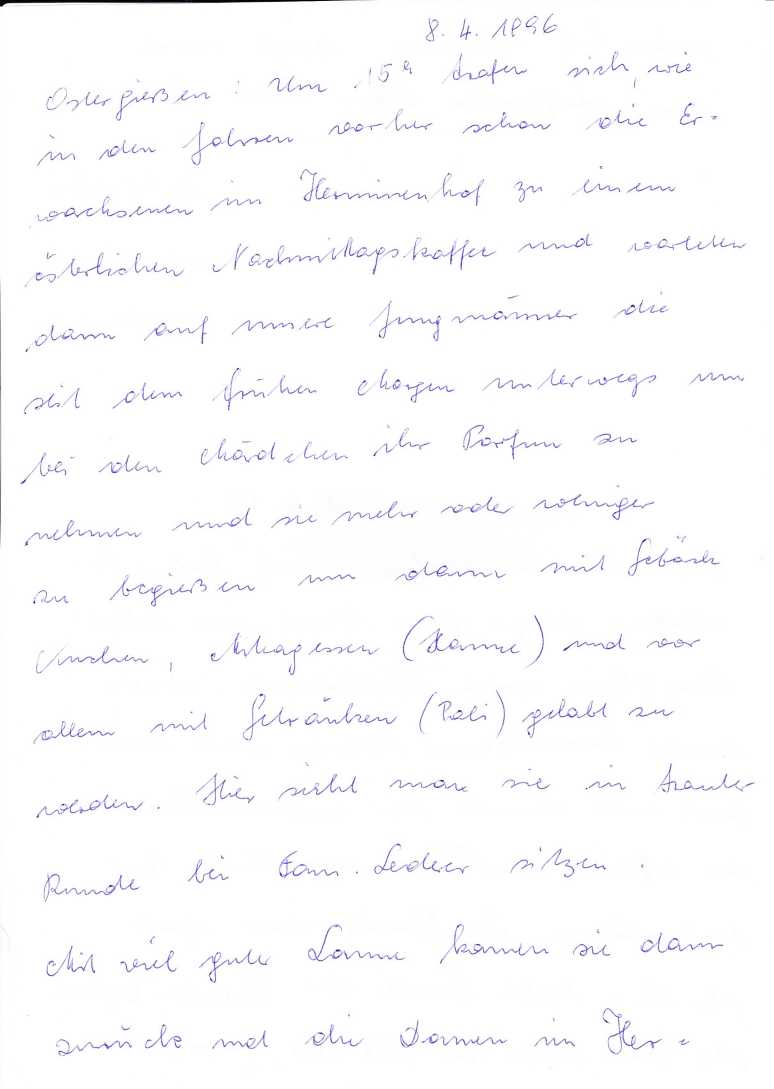 8. 4. 1996
Ostergießen : Um 15ʰ trafen sich, wie
in den Jahren vorher schon die Er=
wachsenen im Herminenhof zu einem
österlichen Nachmittagskaffee und warteten
dann auf unsere Jungmänner die
seit dem frühen Morgen unterwegs um
bei den Mädchen ihr Parfum zu
nehmen und sie mehr oder weniger
zu begießen um dann mit Gebäck
Kuchen, Mittagessen (Hanne) und vor
allem mit Getränken (Pali) gelabt zu
werden. Hier sieht man sie in trauter
Runde bei Fam. Lederer sitzen.
Mit viel guter Laune kamen sie dann
zurück und die Damen im Her=